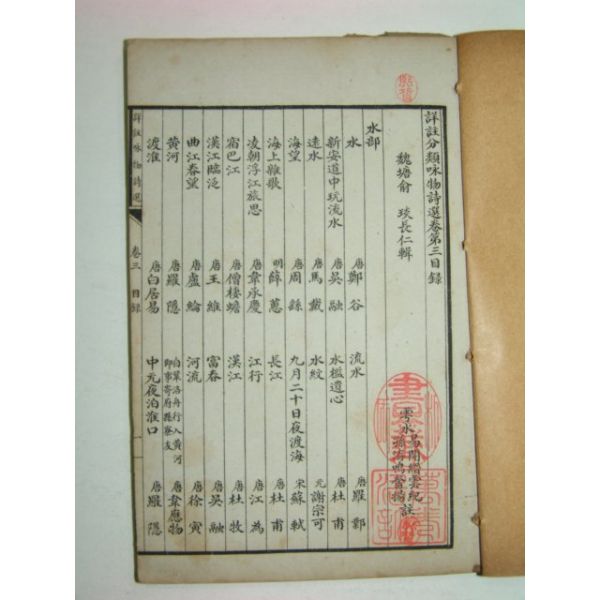 詳註分類咏物詩選卷第三目錄
魏塘俞 琰長仁輯
雩水易開縉雲紀註
孫洊鳴奮揚
水部
水 唐鄭谷 流水 唐羅鄴
新安道中玩流水 唐吳融 水檻遣心 唐杜甫
遠水 唐馬戴 水紋 元謝宗可
海望 唐周繇 九月二十日夜渡海 宋蘇軾
海上雜歌 明薛蕙 長江 唐杜甫
凌朝浮江旅思 唐韋承慶 江行 唐江為
宿巴江 唐僧棲蟾 漢江 唐杜牧
漢江臨泛 唐王維 富春 唐吳融
曲江春望 唐盧綸 河流 唐徐寅
黃河 唐羅隱 自鞏洛舟行入黃河即事寄府縣寮友 唐韋應物
渡淮 唐白居易 中元夜泊淮口 唐羅隱
詳註咏物詩選 卷三 目錄